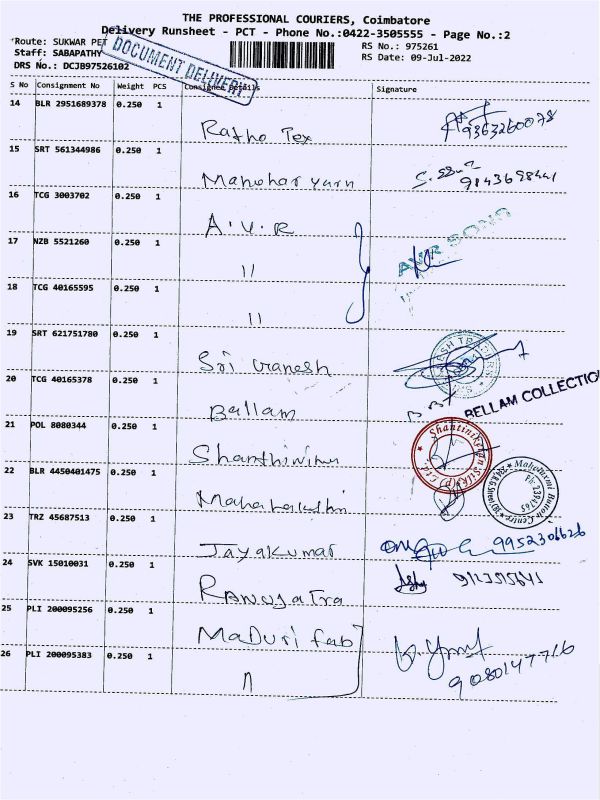 THE PROFESSIONAL COURIERS, Coimbatore
Delivery Runsheet - PCT - Phone No.:0422-3505555 - Page No.:2
*Route: SUKWAR PET
RS No.: 975261
Staff: SABAPATHY
RS Date: 09-Jul-2022
DRS No.: DCJB97526102
DOCUMENT DELIVERY
S No Consignment No Weight PCS Consignee Details Signature
14 BLR 2951689378 0.250 1
Ratho Tex 9363260078
15 SRT 561344986 0.250 1
Manohar yarn
16 TCG 3003702 0.250 1
A.V.R
17 NZB 5521260 0.250 1
11
18 TCG 40165595 0.250 1
11
19 SRT 621751780 0.250 1
Sri Ganesh
20 TCG 40165378 0.250 1
Ballam BELLAM COLLECTIO
21 POL 8080344 0.250 1
Shanthinikn Shantiniketan Silks (P) Ltd.
22 BLR 4450401475 0.250 1
Mahalakshmi Mahalaxmi Button Centre
23 TRZ 45687513 0.250 1
Jayakumar 9952306626
24 SVK 15010031 0.250 1
25 PLI 200095256 0.250 1
MaDuri fab
26 PLI 200095383 0.250 1
9080147716